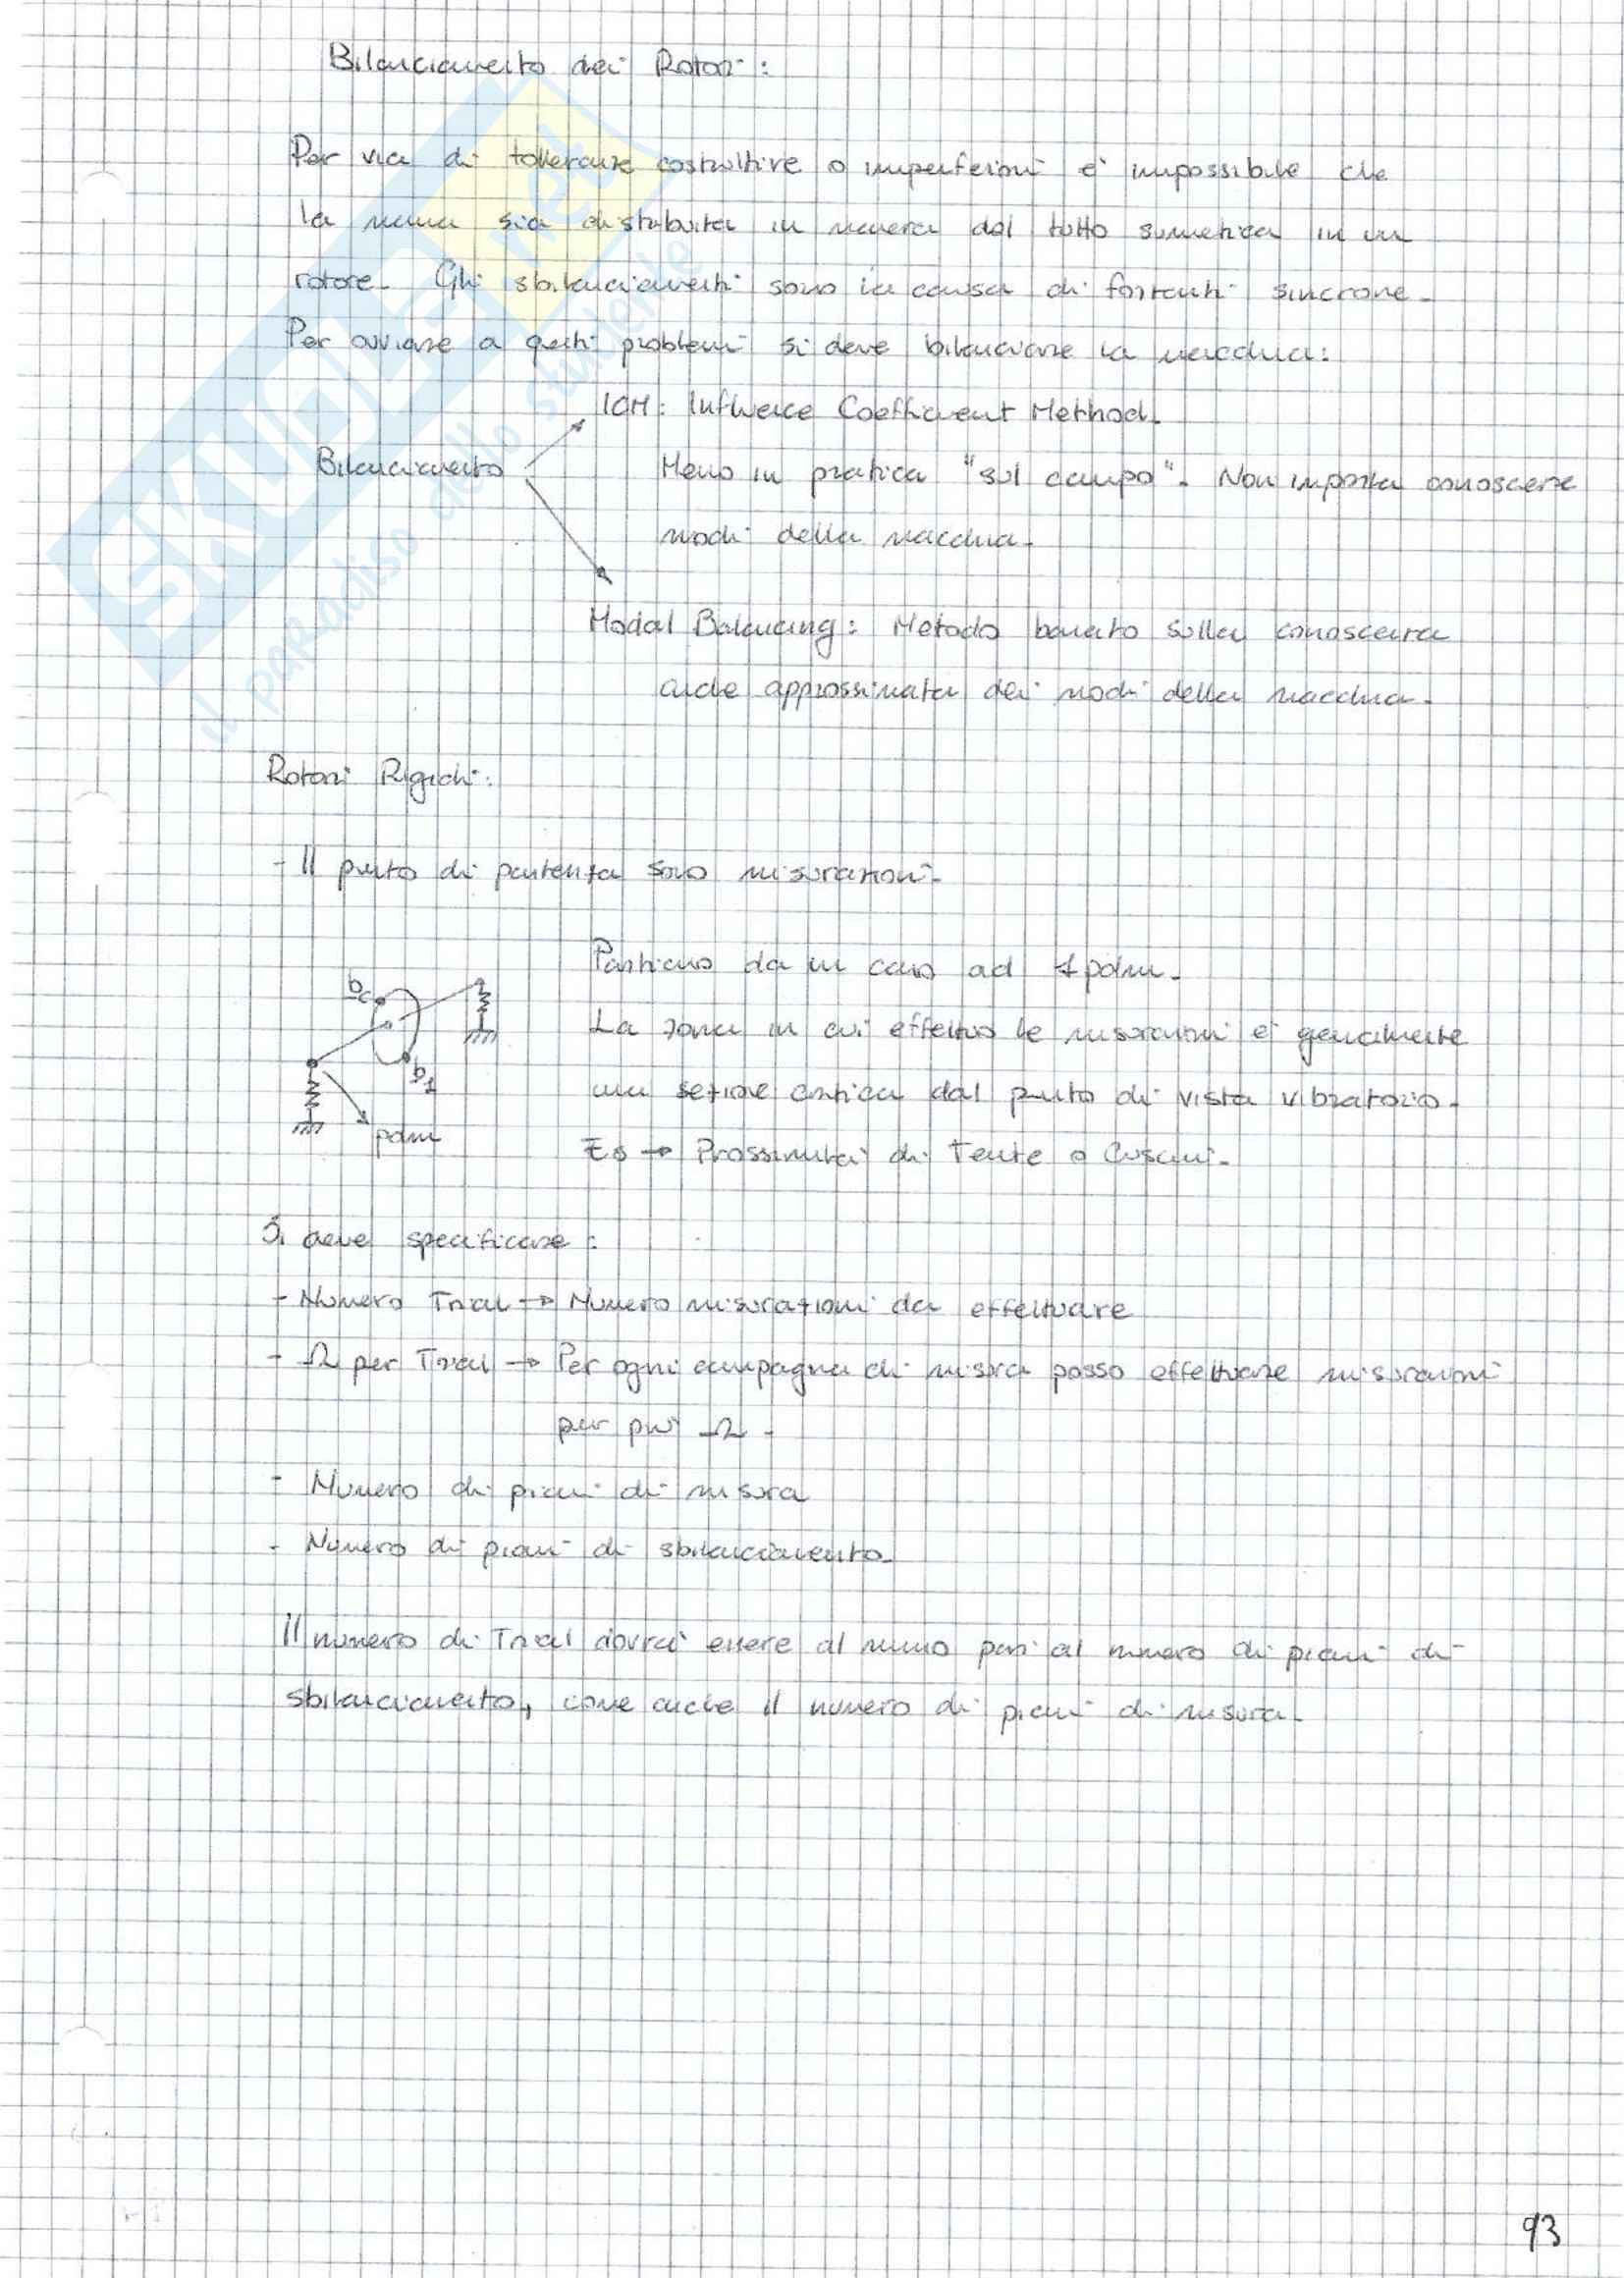 Bilanciamento dei Rotori:
Per via di tolleranze costruttive o imperfezioni è impossibile che
la massa sia distribuita in maniera del tutto simmetrica in un
rotore. Gli sbilanciamenti sono la causa di forzanti sincrone.
Per ovviare a questi problemi si deve bilanciare la macchina:
ICM: Influence Coefficient Method.
Bilanciamento
Messo in pratica "sul campo". Non importa conoscere
modi della macchina.
Modal Balancing: Metodo basato sulla conoscenza
anche approssimata dei modi della macchina.
Rotori Rigidi:
- Il punto di partenza sono misurazioni.
Partiamo da un caso ad 1 pdm.
bc
La zona in cui effettuo le misurazioni è generalmente
b1
una sezione critica dal punto di vista vibratorio.
pdm
Es → Prossimità di Tenute o Cuscini.
Si deve specificare:
- Numero Trial → Numero misurazioni da effettuare
- Ω per Trial → Per ogni campagna di misura posso effettuare misurazioni
per più Ω.
- Numero di piani di misura
- Numero di piani di sbilanciamento.
Il numero di Trial dovrà essere al minimo pari al numero di piani di
sbilanciamento, come anche il numero di piani di misura.
93
SKUOLA.net
il paradiso dello studente